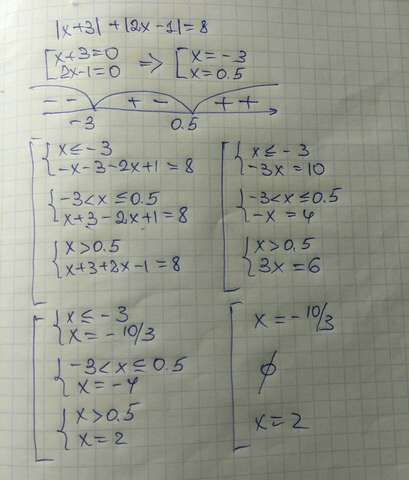 |x+3| + |2x-1| = 8
[x+3=0 => [x=-3
2x-1=0 x=0.5
- - + - + +
-3 0.5
{x≤-3
-x-3-2x+1=8
{-3<x≤0.5
x+3-2x+1=8
{x>0.5
x+3+2x-1=8
{x≤-3
-3x=10
{-3<x≤0.5
-x=4
{x>0.5
3x=6
{x≤-3
x=-10/3
{-3<x≤0.5
x=-4
{x>0.5
x=2
x=-10/3
∅
x=2